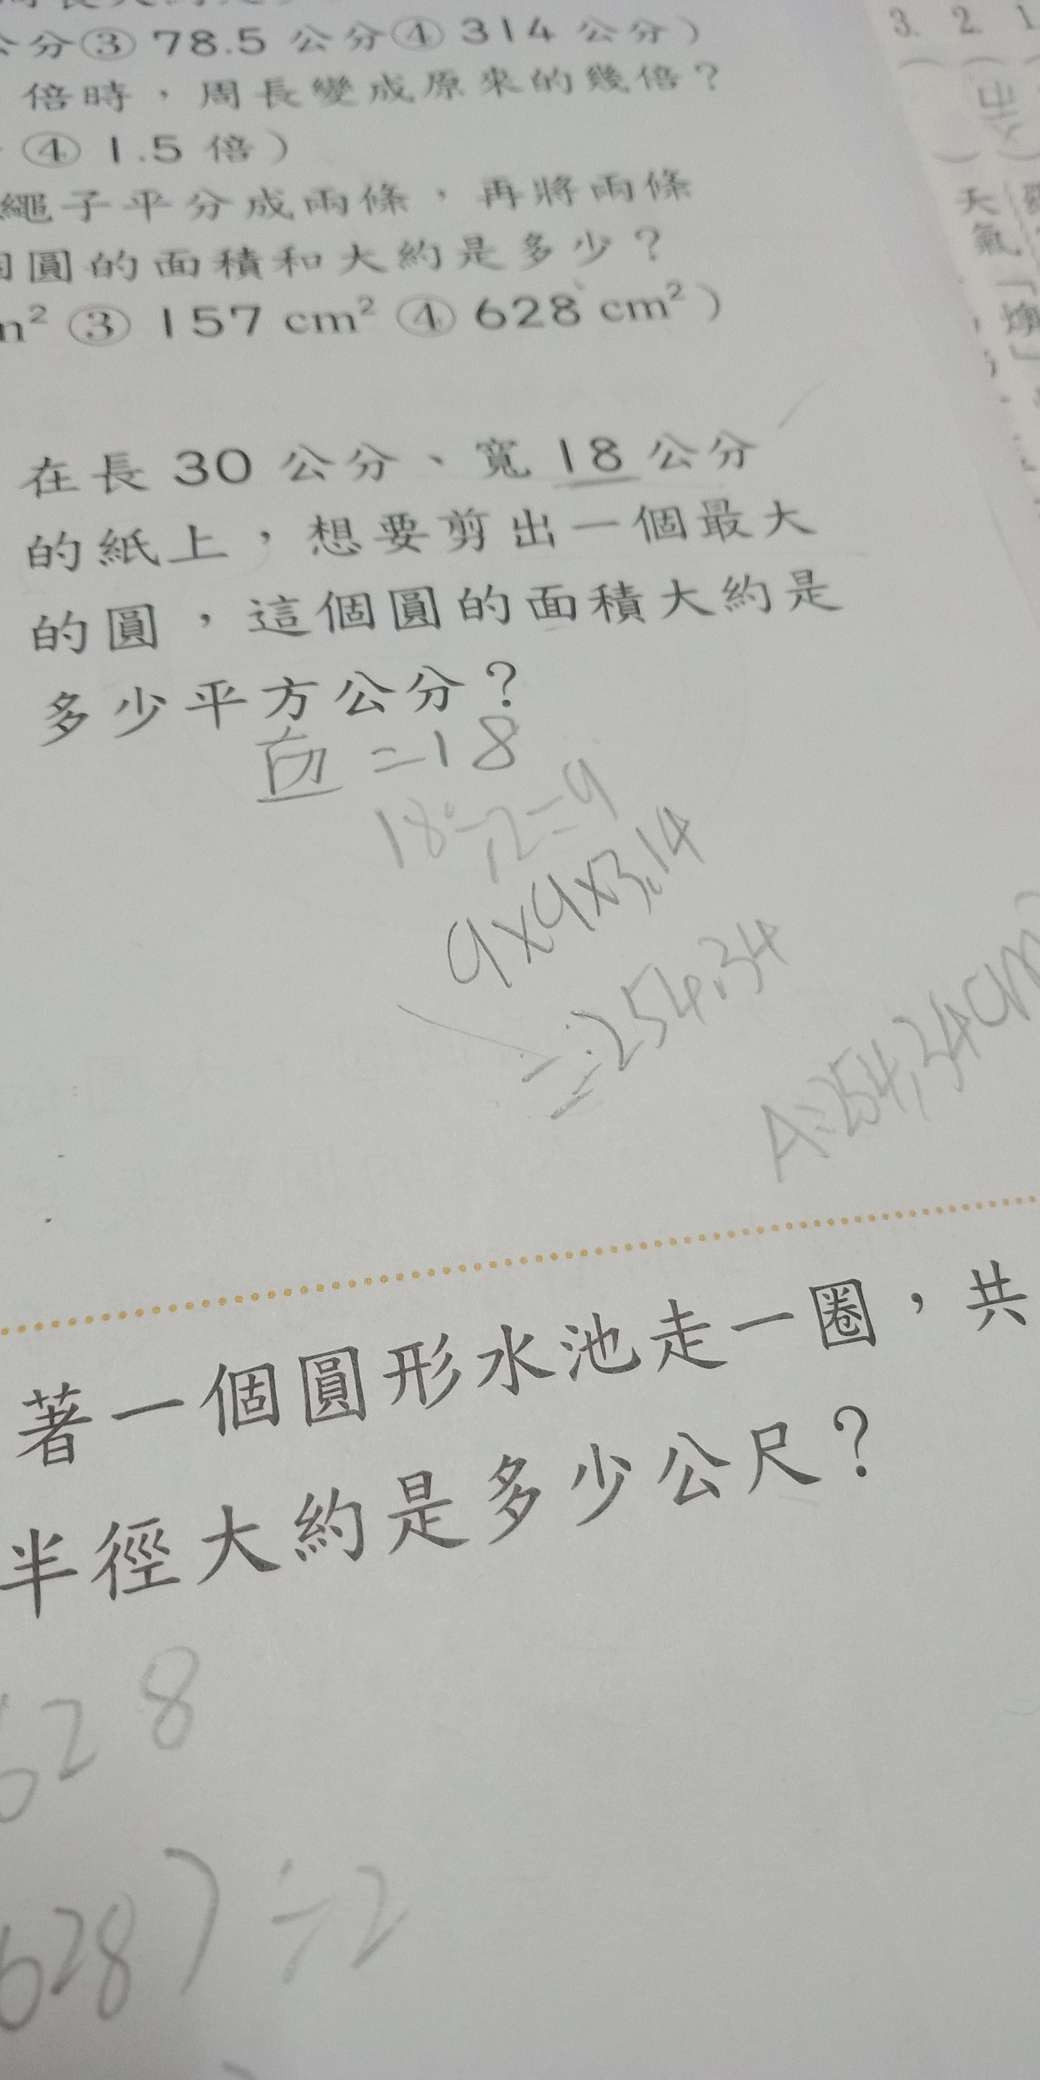 公分③ 78.5 公分④ 314 公分）
倍時，周長變成原來的幾倍？
④ 1.5 倍）
繩子平分成兩條，再將兩條
圓的面積和大約是多少？
③ 157 cm² ④ 628 cm²）
在長 30 公分、寬 18 公分
的紙上，想要剪出一個最大
的圓，這個圓的面積大約是
多少平方公分？
=18
18÷2=9
9×9×3.14
=254.34
A:254.34cm
著一個圓形水池走一圈，共
半徑大約是多少公尺？
628
628)÷2
3. 2. 1
天氣「